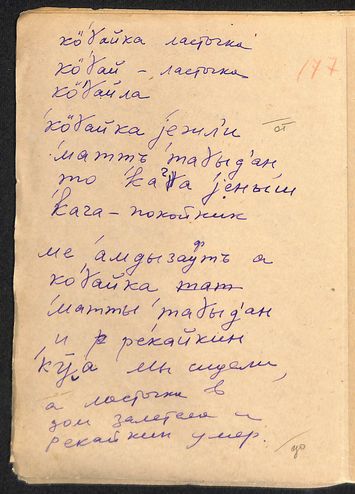 кӧ̄ɣайка ласточка
177
кӧ̄ɣай – ласточка
кӧ̄ɣайла
кӧ̄ɣайка jежл'и
от
матт таɣыд'ан
то кача jеныш
кача – покойник
ме амдызаут а
кӧɣайка тат
матты таɣыд'ан
и рекайкин
кӯ а мы сидели,
а ласточка в
дом залетела и
рекайкин умер.